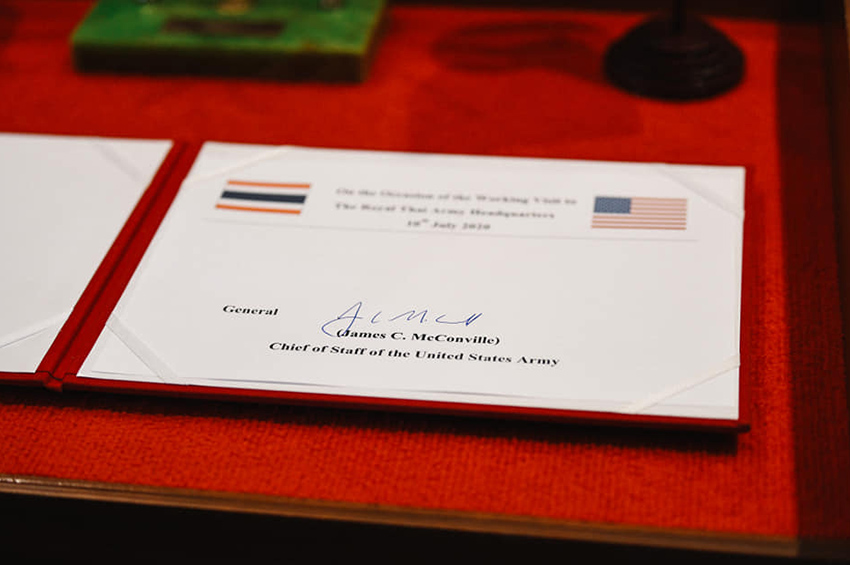 On the Occasion of the Working Visit to
The Royal Thai Army Headquarters
10th July 2020
General
(James C. McConville)
Chief of Staff of the United States Army